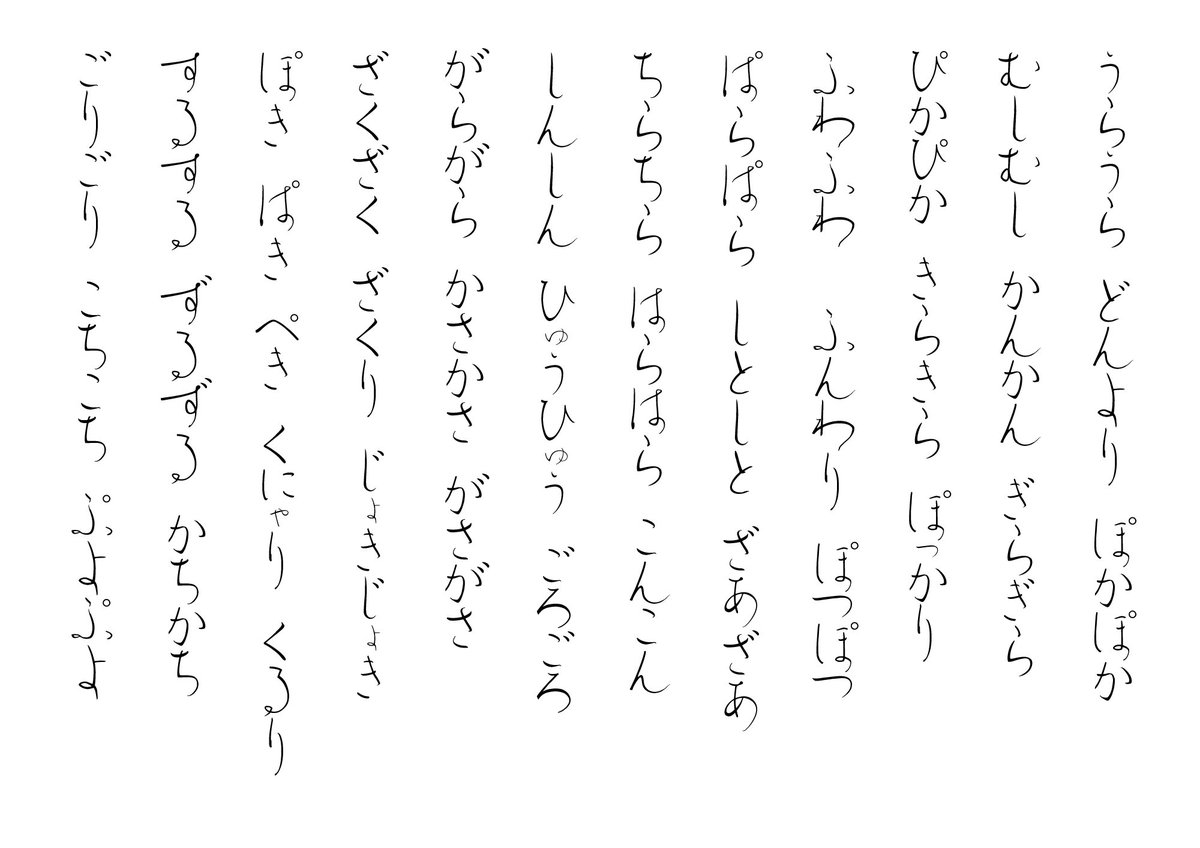 うらうら どんより ぽかぽか
むしむし かんかん ぎらぎら
ぴかぴか きらきら ぽっかり
ふわふわ ふんわり ぽつぽつ
ぱらぱら しとしと ざあざあ
ちらちら はらはら こんこん
しんしん ひゅうひゅう ごろごろ
がらがら かさかさ がさがさ
ざくざく ざくり じょきじょき
ぽき ぱき ぺき くにゃり くるり
するする ずるずる かちかち
ごりごり こちこち ぷよぷよ